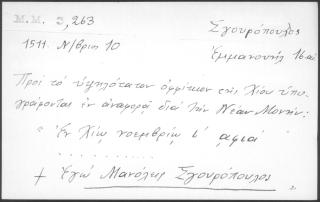 M.M. 3,263
Σγουρόπουλος
Ἐμμανουὴλ 16 αἰ
1511. Ν/βρίου 10
Πρὸς τὸ ὑψηλότατον ὀφφίκιον τῆς Χίου ὑπο-
γράφονται ἐν ἀναφορᾷ διὰ τὴν Νέαν Μονήν:
" Ἐν Χίῳ νοεμβρίῳ ι' αφια'
. . . . . . . . . .
+ Ἐγὼ Μανόλης Σγουρόπουλος